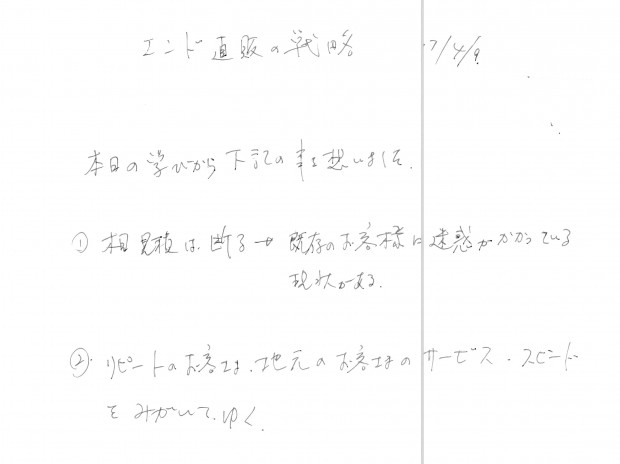 エンド直販の戦略 '7/4/9
本日の学びから下記の事を想いました.
① 相見積は断る→既存のお客様に迷惑がかかっている
現状がある.
②.リピートのお客さま、地元のお客さまのサービス・スピード
をみがいてゆく.